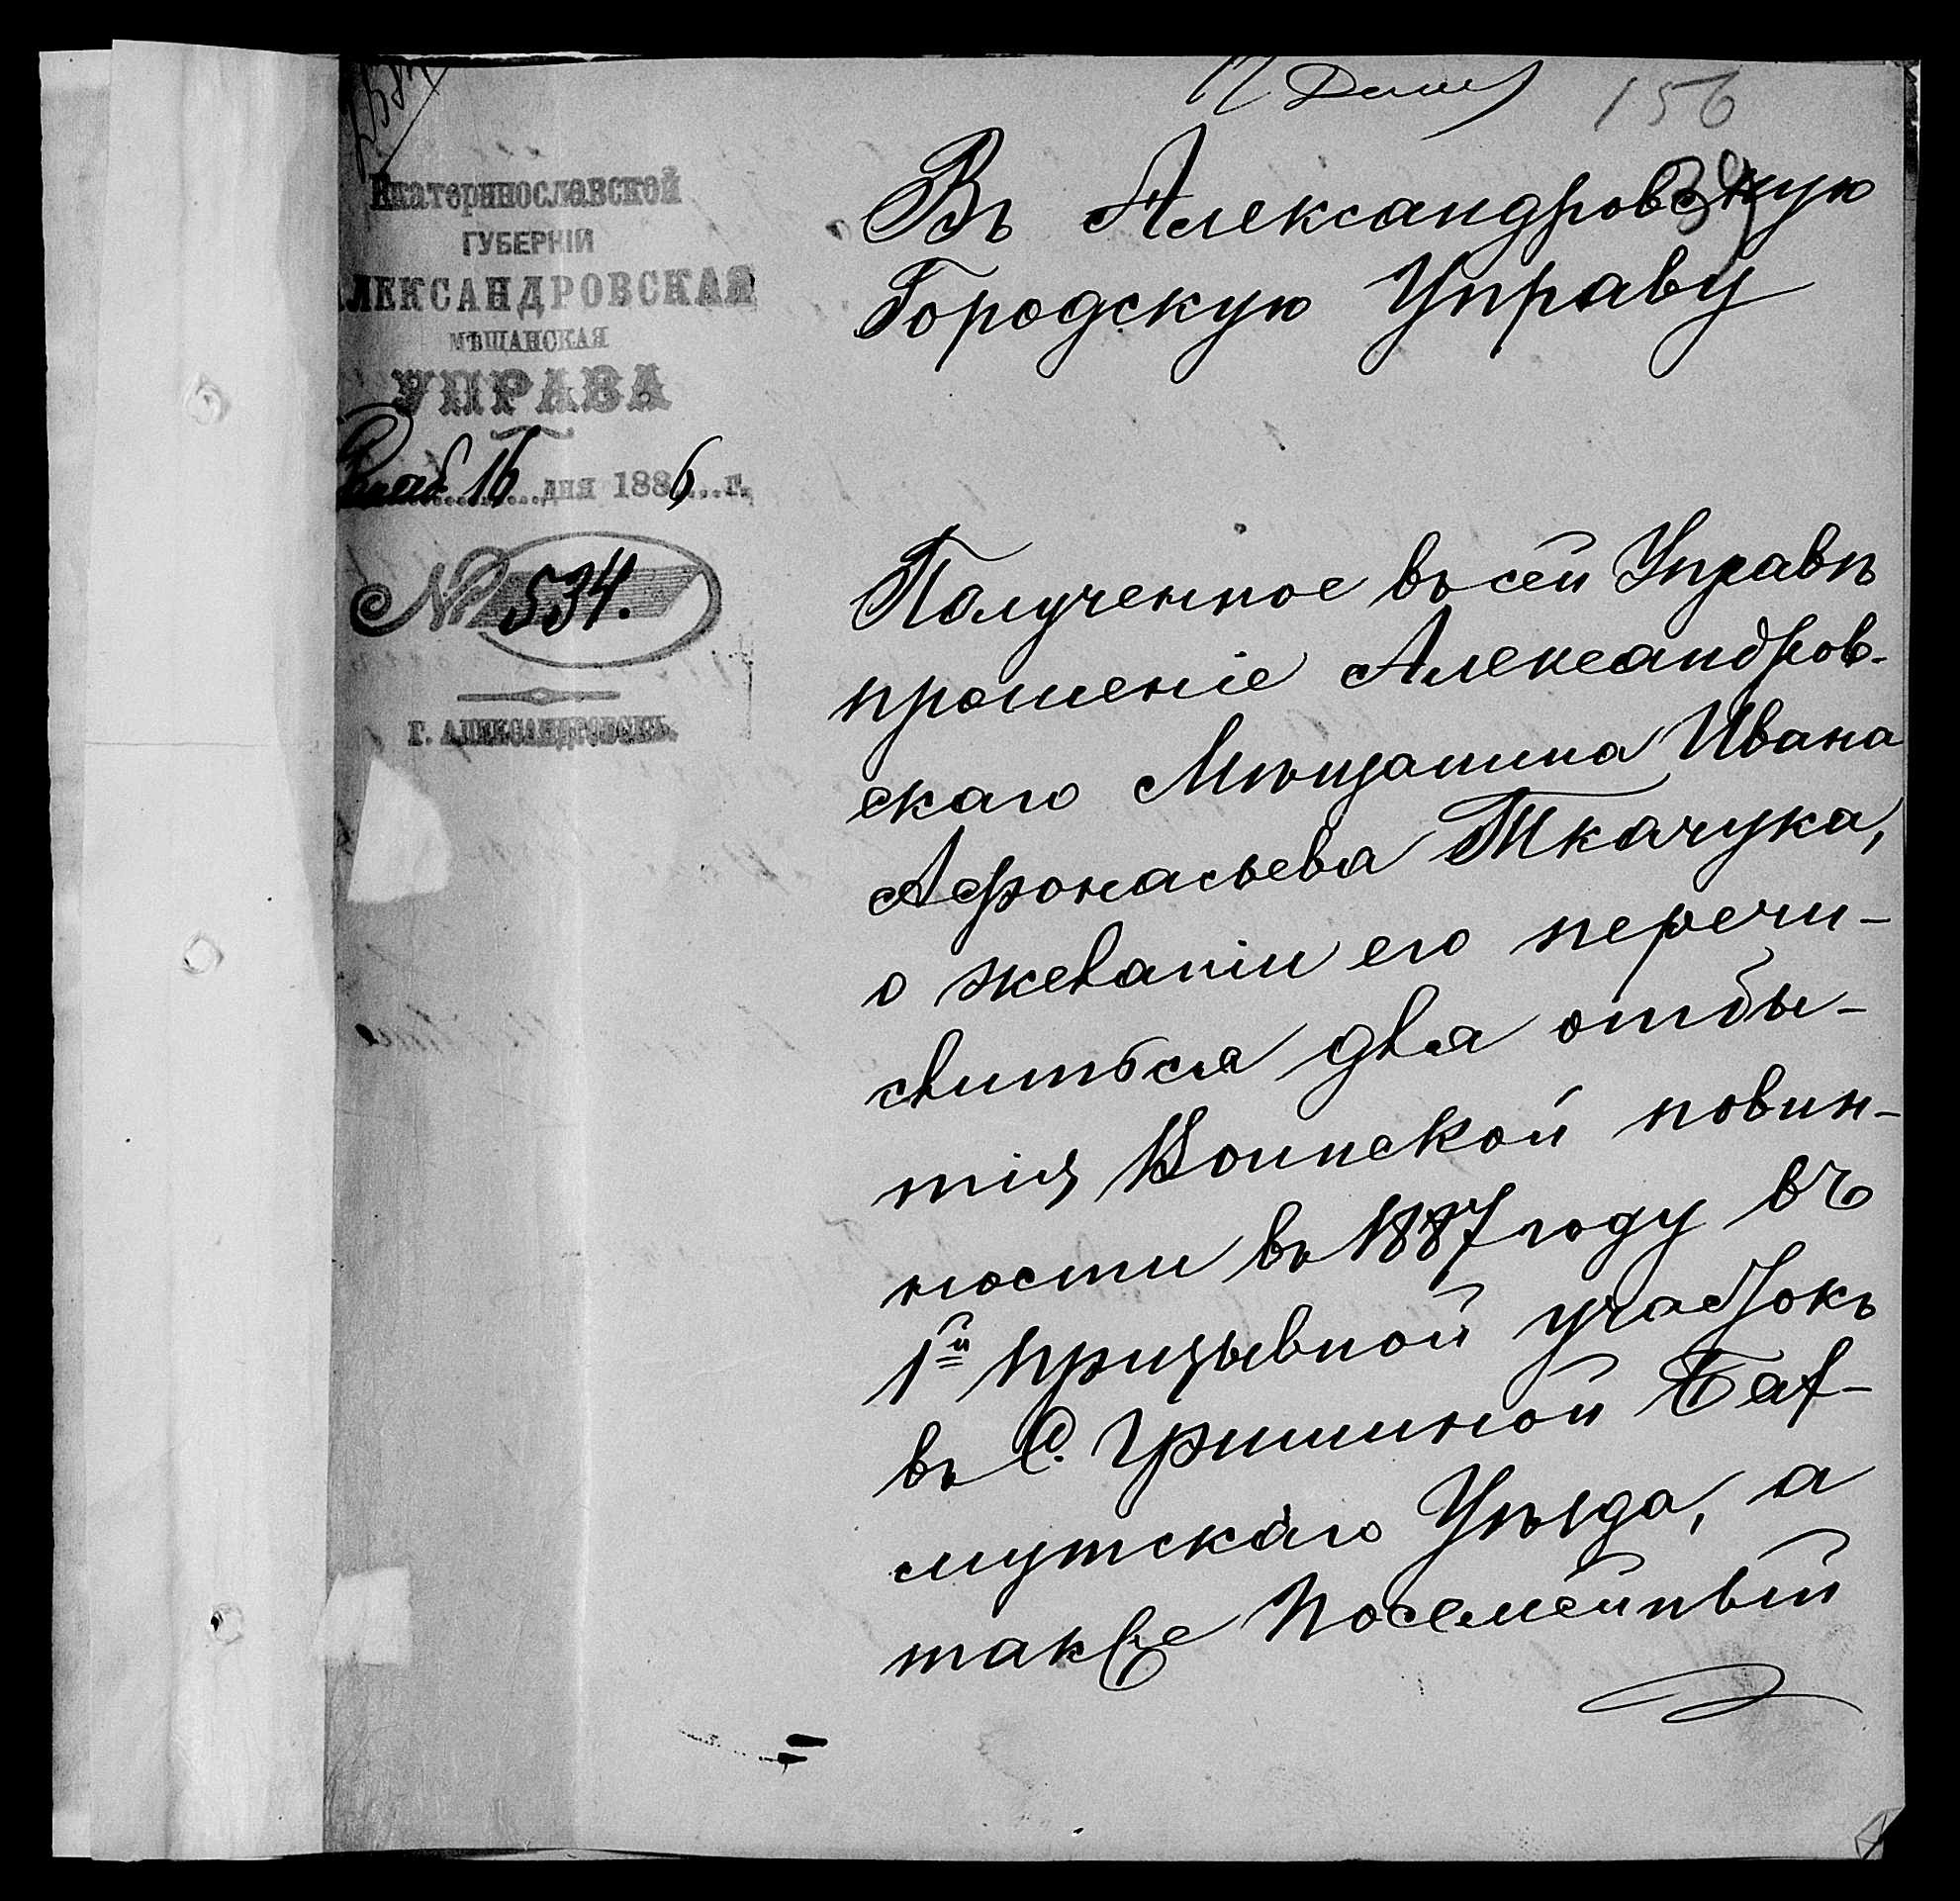 156
39
Екатеринославской
ГУБЕРНІИ
АЛЕКСАНДРОВСКАЯ
МѢЩАНСКАЯ
УПРАВА
16 дня 1886 г.
№ 534.
Г. АЛЕКСАНДРОВСКЪ.
Въ Александровскую
Городскую Управу
Полученное въ сей Управѣ
прошеніе Александров-
скаго Мѣщанина Ивана
Афонасьева Ткачука,
о желаніи его перечи-
слиться для отбы-
тія Воинской повин-
ности въ 1887 году въ
1й призывной участокъ
въ С. Гришиной Бах-
мутскаго Уѣзда, а
также Посемейный